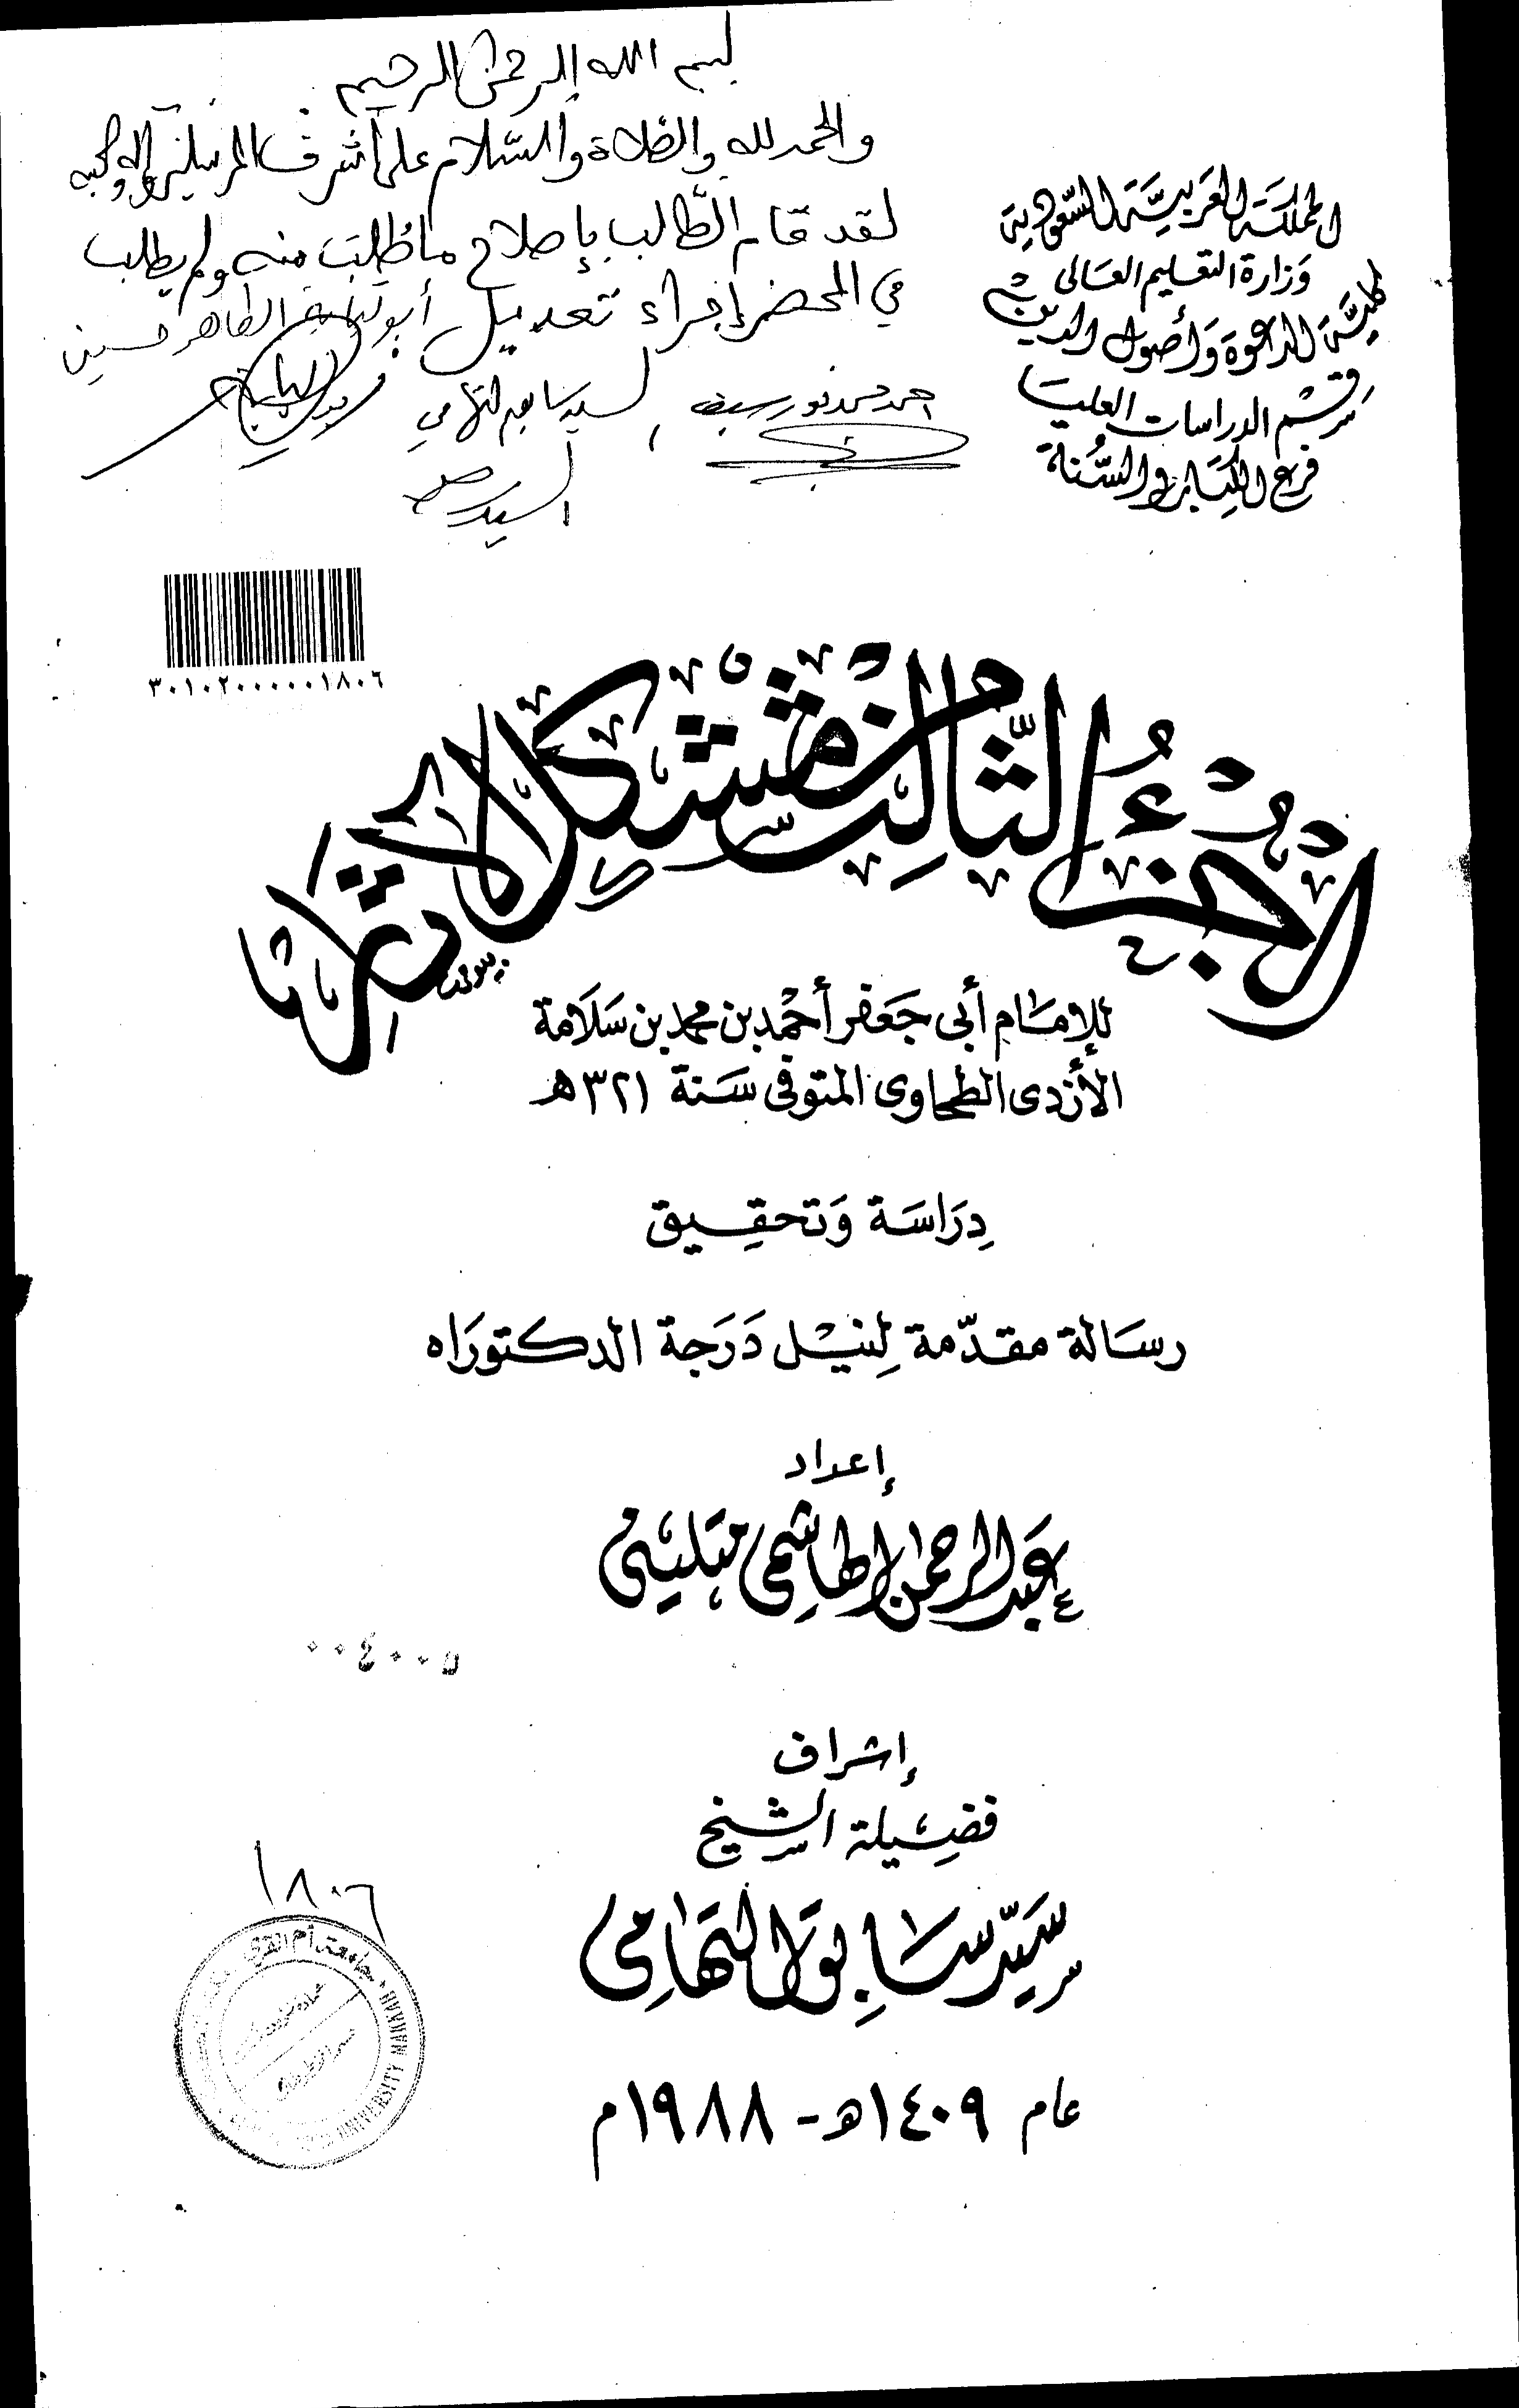 بسم الله الرحمن الرحيم
والحمد لله والصلاة والسلام على أشرف المرسلين وآله وصحبه
لقد قام الطالب بإصلاح ما طلبت منه ولم يطلب
في المحضر إجراء تعديل
أبو لبابة الطاهر حسين
أحمد محمد نور سيف
السيد سابق التهامي
المملكة العربية السعودية
وزارة التعليم العالى
كلية الدعوة وأصول الدين
قسم الدراسات العليا
فرع الكتاب والسنة
٣٠١٠٢٠٠٠٠٠٠١٨٠٦
الجزء الثالث من مشكل الآثار
للإمام أبى جعفر أحمد بن محمد بن سلامة
الأزدى الطحاوى المتوفى سنة ٣٢١ هـ
دراسة وتحقيق
رسالة مقدّمة لنيل درجة الدكتوراه
إعداد
عبد الرحمن الهاشمى
إشراف
فضيلة الشيخ
سيّد سابق التهامى
١٨٠٦
جامعة أم القرى
UNIVERSITY
عام ١٤٠٩هـ - ١٩٨٨م